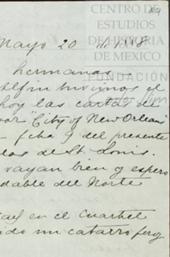 CENTRO DE
ESTUDIOS
DE HISTORIA
DE MEXICO
FUNDACIÓN
Mayo 20
hermanas
al fin tuvimos el
hoy las cartas del
por "City of New Orleans"
fcha 9 del presente
das de St. Louis.
vayan bien y espero
dable del Norte
en el Cuartel
ido un catarro feroz